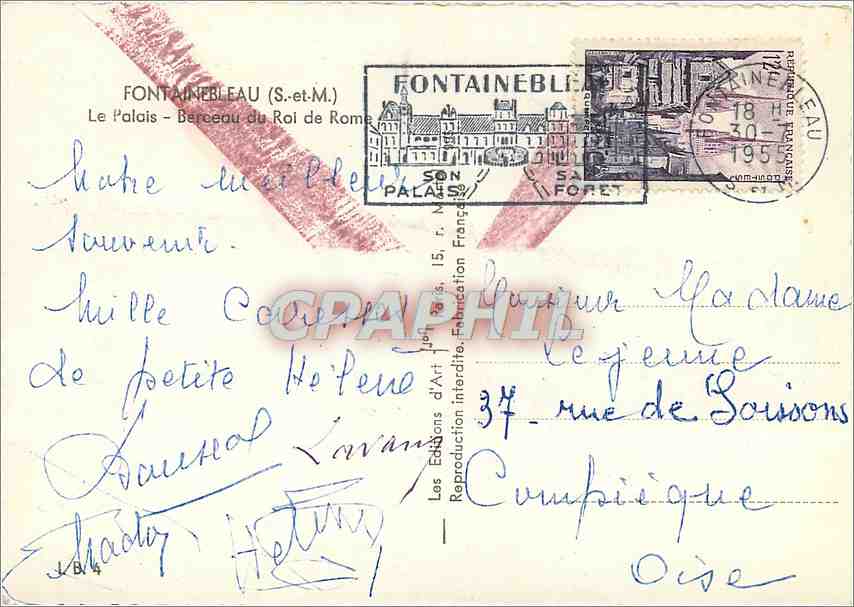 FONTAINEBLEAU (S.-et-M.)
Le Palais - Berceau du Roi de Rome
FONTAINEBLEAU
SON PALAIS
SA FORET
REPUBLIQUE FRANÇAISE
12F
POSTES
FONTAINEBLEAU
18 H
30-7
1955
Notre meilleur
souvenir.
Mille Caresses
de petite Hélène
Hélène
Monsieur Madame
Lejeune
37 - rue de Soissons
Compiègne
Oise
Les Editions d'Art
Paris, 15, r.
Reproduction interdite. Fabrication Française
CPAPHIL
I. B. 4